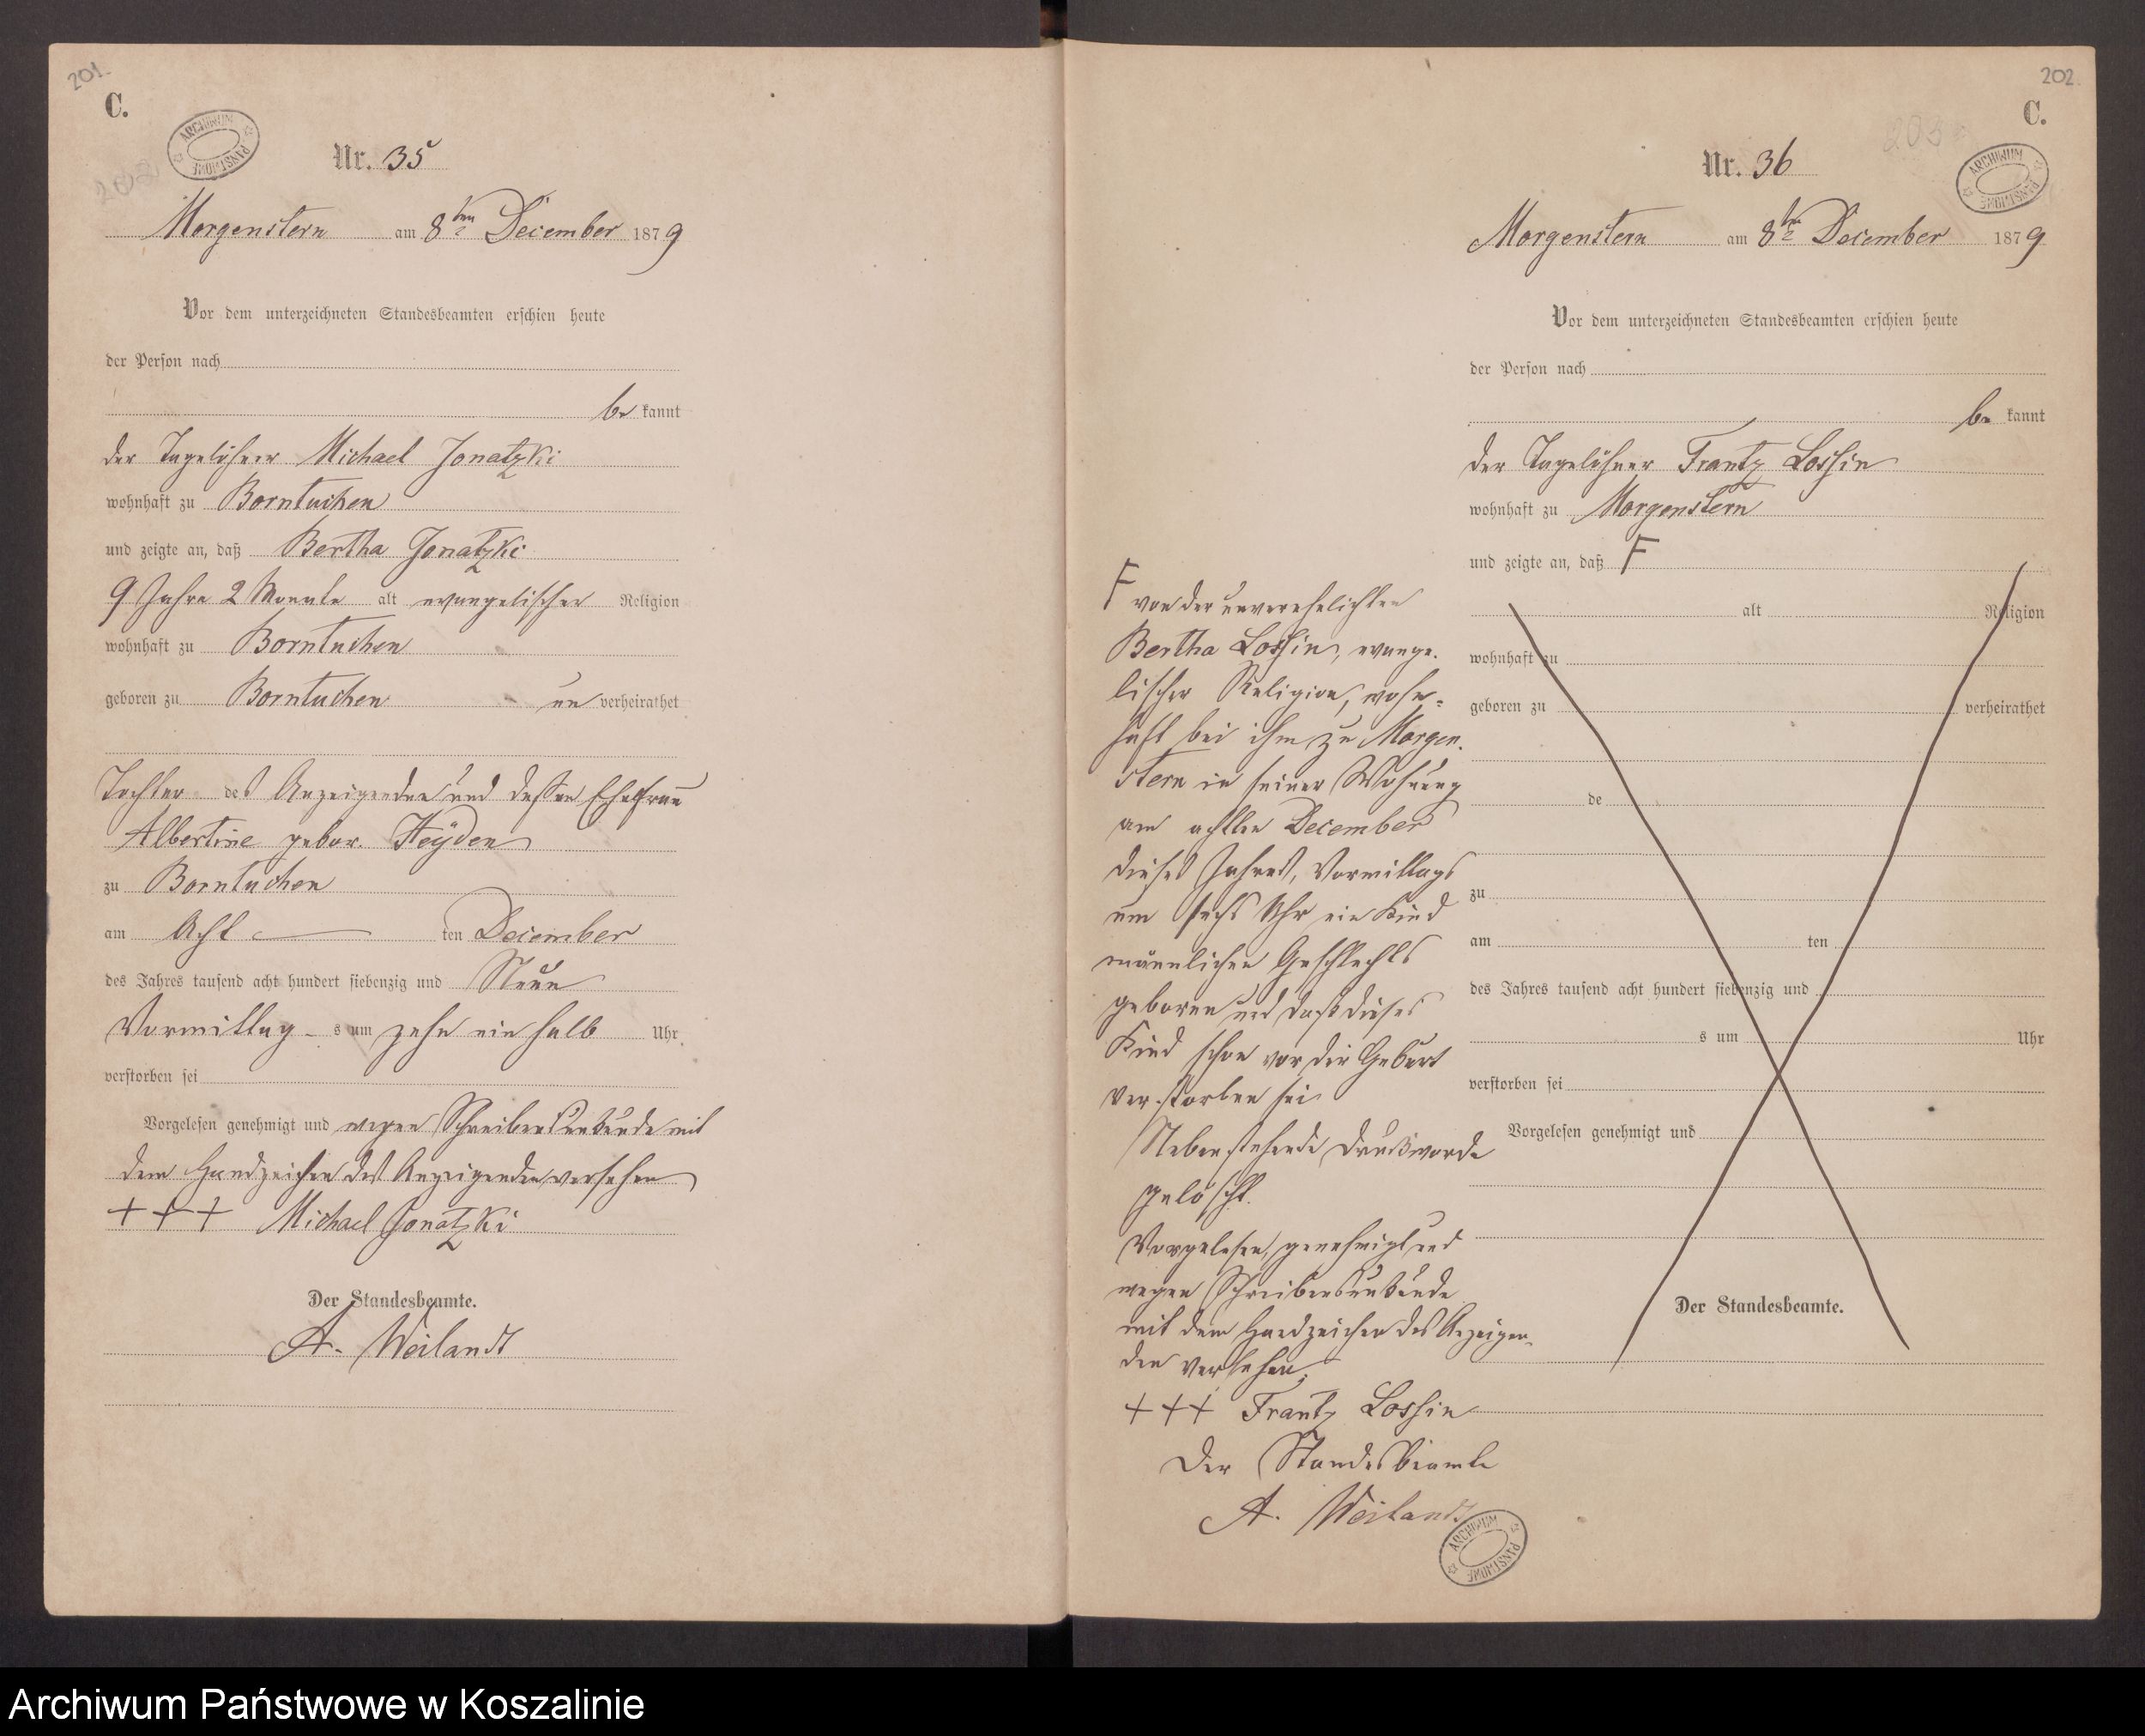 201.
C.
ARCHIWUM PAŃSTWOWE
Nr. 35
Morgenstern am 8ten December 1879
Vor dem unterzeichneten Standesbeamten erschien heute
der Person nach
be kannt
der Tagelöhner Michael Jonatzki
wohnhaft zu Borntuchen
und zeigte an, daß Bertha Jonatzki
9 Jahre 2 Monate alt evangelischer Religion
wohnhaft zu Borntuchen
geboren zu Borntuchen un verheirathet
Tochter des Anzeigenden und dessen Ehefrau
Albertine gebor. Heyden
zu Borntuchen
am Acht ten December
des Jahres tausend acht hundert siebenzig und Neun
Vormittag s um zehn ein halb Uhr
verstorben sei
Vorgelesen genehmigt und wegen Schreibensunkunde mit
dem Handzeichen des Anzeigenden versehen
+++ Michael Jonatzki
Der Standesbeamte.
A. Weilandt
202.
C.
203
ARCHIWUM PAŃSTWOWE
Nr. 36
Morgenstern am 8te December 1879
Vor dem unterzeichneten Standesbeamten erschien heute
der Person nach
be kannt
der Tagelöhner Frantz Lossin
wohnhaft zu Morgenstern
und zeigte an, daß F
alt Religion
wohnhaft zu
geboren zu verheirathet
de
zu
am ten
des Jahres tausend acht hundert siebenzig und
s um Uhr
verstorben sei
Vorgelesen genehmigt und
Der Standesbeamte.
F von der unverehelichten
Bertha Lossin, evange-
lischer Religion, wohn-
haft bei ihm zu Morgen-
stern in seiner Wohnung
am achten December
dieses Jahres, Vormittags
um sechs Uhr ein Kind
männlichen Geschlechts
geboren und daß dieses
Kind schon vor der Geburt
verstorben sei
Nebenstehende Druckworde
gelöscht.
Vorgelesen, genehmigt und
wegen Schreibensunkunde
mit dem Handzeichen des Anzeigen-
den versehen.
+++ Frantz Lossin
Der Standesbeamte
A. Weilandt
ARCHIWUM PAŃSTWOWE
Archiwum Państwowe w Koszalinie